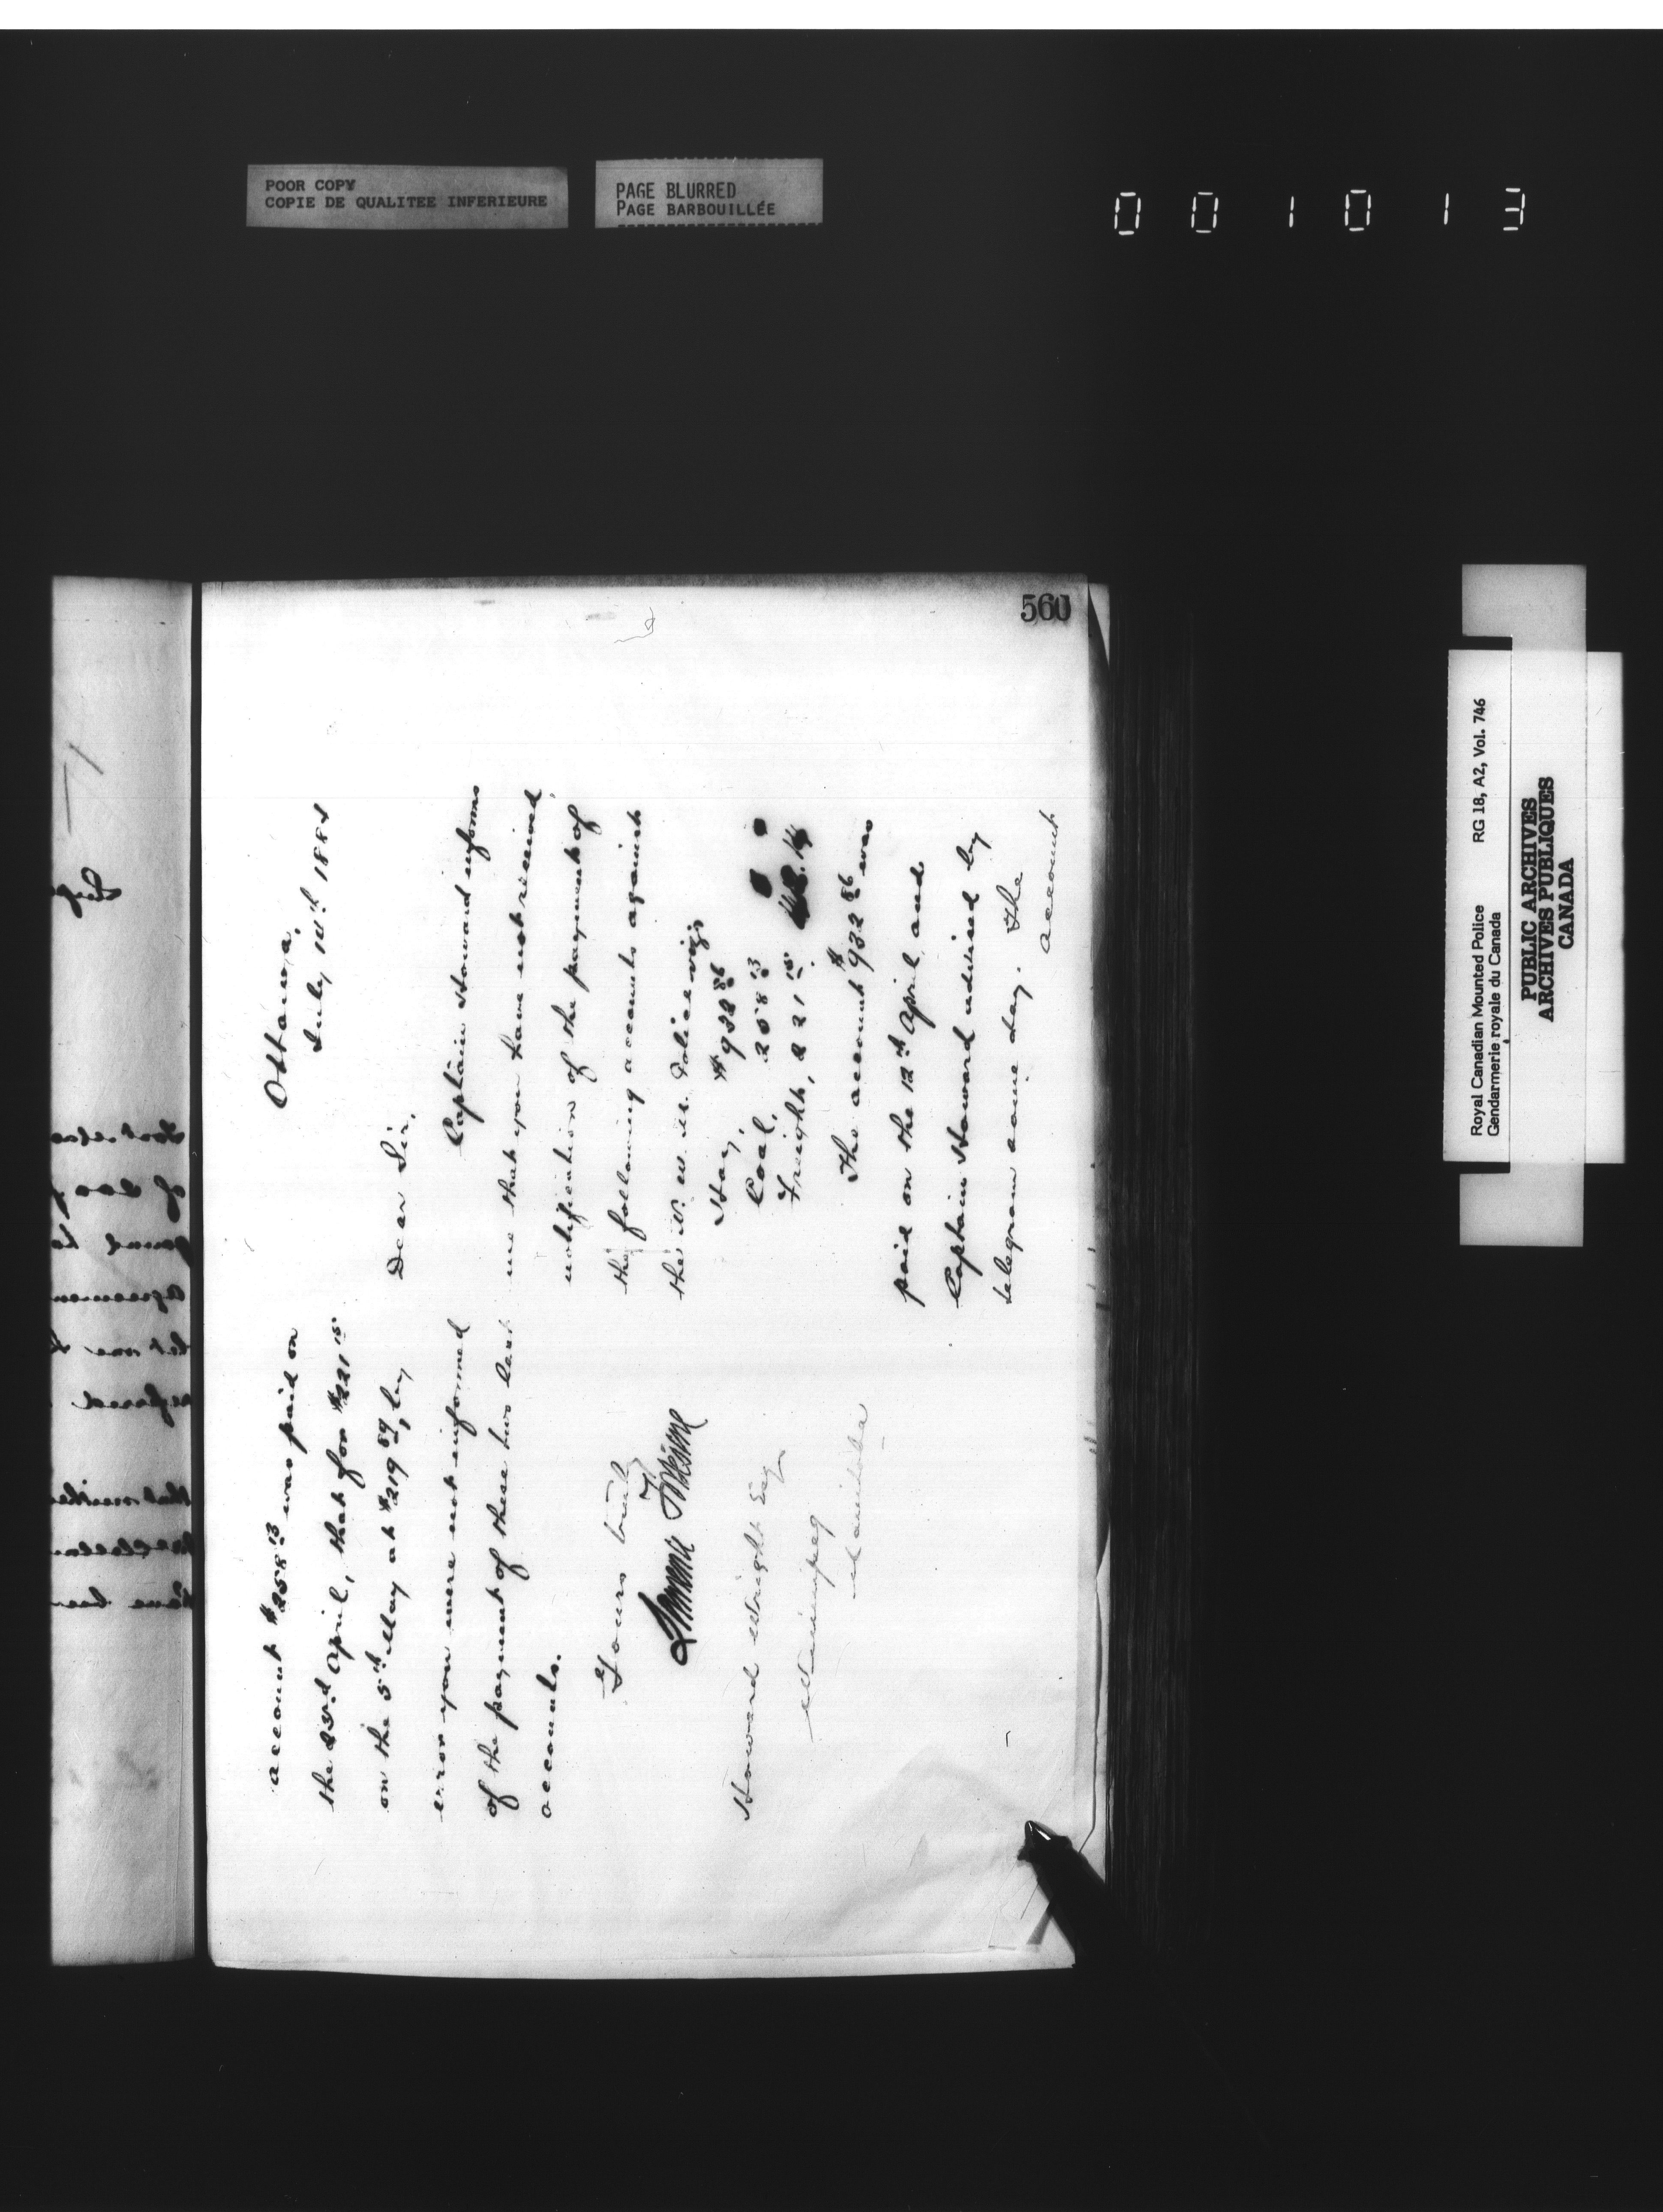 POOR COPY
COPIE DE QUALITEE INFERIEURE
PAGE BLURRED
PAGE BARBOUILLÉE
001013
560
Ottawa,
July 14th 1884
Dear Sir,
Captain Howard informs
me that you have not received
notification of the payment of
the following accounts against
the N. W. M. Police viz:
Hay, $932 86
Coal, 258 13
Freight, 221 15
The account $932 86 was
paid on the 12th April, and
Captain Howard advised by
telegram same day. The
account
account $258 13 was paid on
the 23rd April, that for $221 15
on the 5th May at $219 89, by
error you were not informed
of the payment of these two last
accounts.
Yours truly
Howard Wright Esq
Winnipeg
Manitoba
Royal Canadian Mounted Police RG 18, A2, Vol. 746
Gendarmerie royale du Canada
PUBLIC ARCHIVES
ARCHIVES PUBLIQUES
CANADA